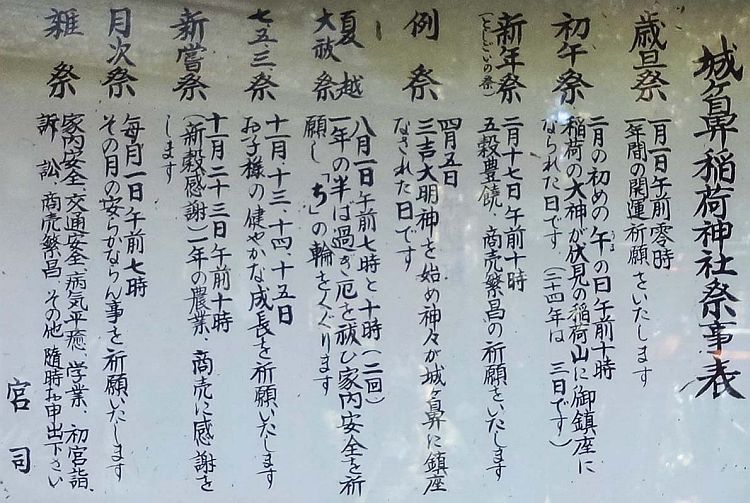 城ヶ鼻稲荷神社祭事表
歳旦祭
一月一日午前零時
一年間の開運祈願をいたします
初午祭
二月の初めの午の日午前十時
稲荷の大神が伏見の稲荷山に御鎮座に
なられた日です(二十四年は三日です)
新年祭
(としごいの祭)
二月十七日午前十時
五穀豊饒、商売繁昌の祈願をいたします
例祭
四月五日
三吉大明神を始め神々が城ヶ鼻に鎮座
なされた日です
夏越
大祓祭
八月一日午前七時と十時(二回)
一年の半は過ぎ厄を祓ひ家内安全を祈
願し「ち」の輪をくぐります
七五三祭
十一月、十三、十四、十五日
お子様の健やかな成長を祈願いたします
新嘗祭
十一月二十三日午前十時
(新穀感謝)一年の農業、商売に感謝を
します
月次祭
毎月一日午前七時
その月の安らかならん事を祈願いたします
雑祭
家内安全、交通安全、病気平癒、学業、初宮詣、
訴訟、商売繁昌、その他随時お申出下さい
宮司